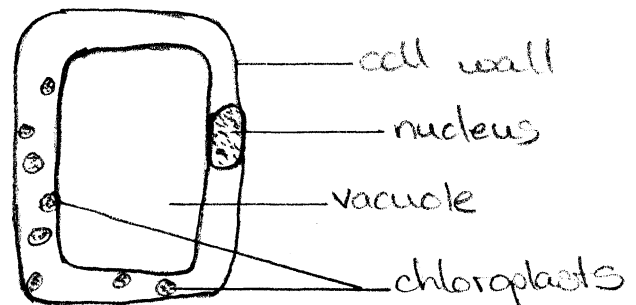 cell wall
nucleus
vacuole
chloroplasts